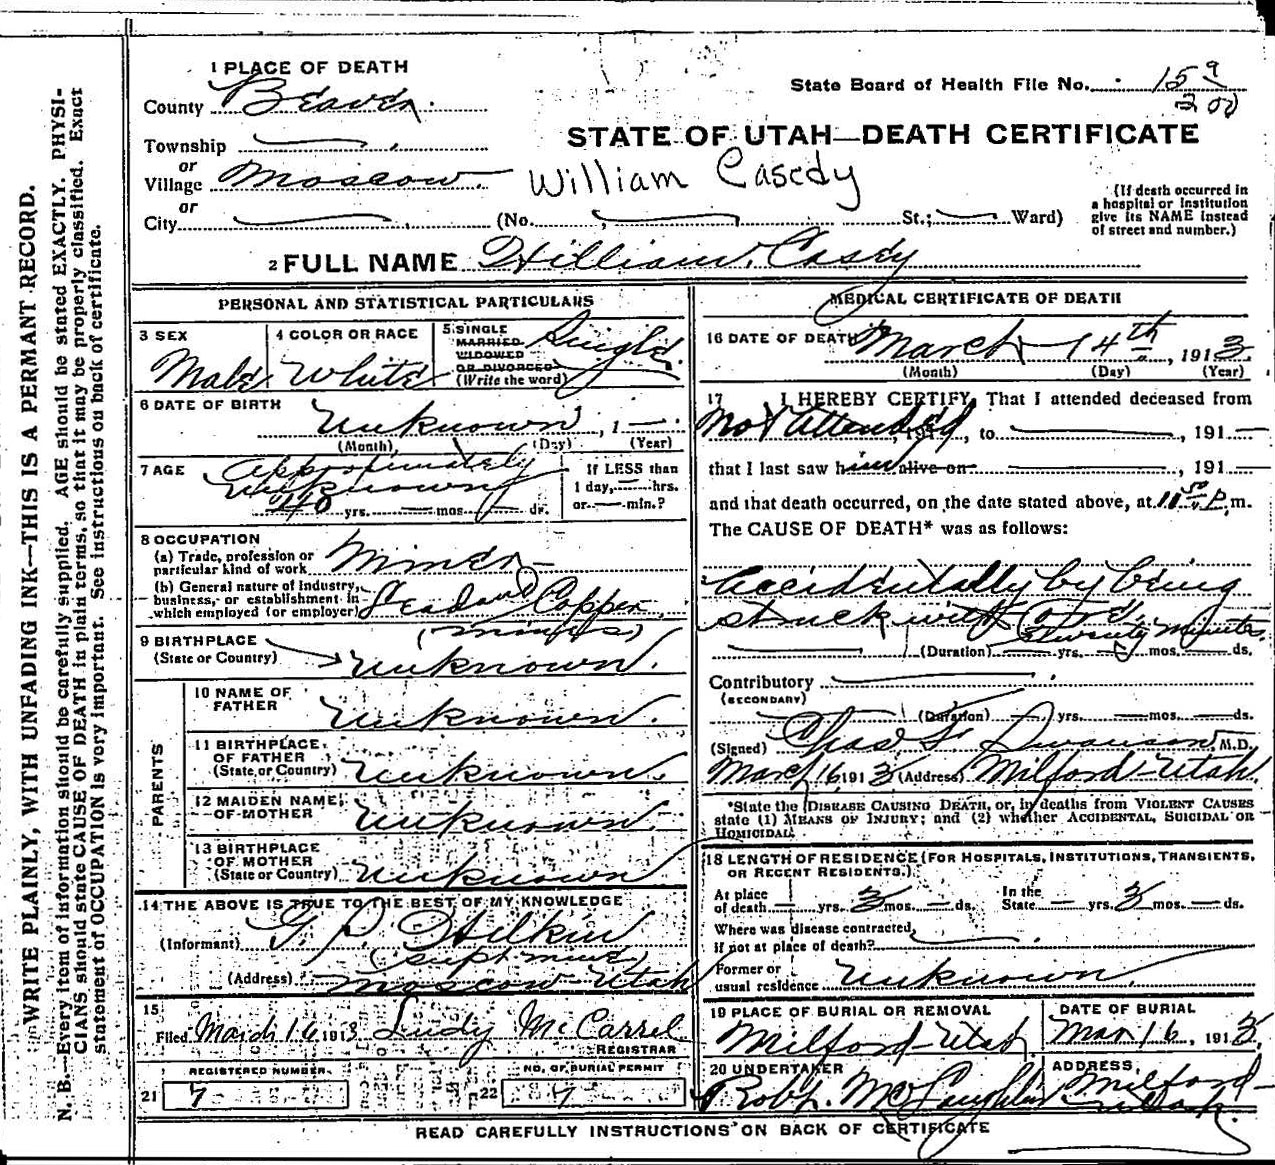 1 PLACE OF DEATH
County Beaver.
Township
or
Village Moscow.
or
City (No. St.; Ward)
State Board of Health File No. 15 9
200
STATE OF UTAH—DEATH CERTIFICATE
William Casedy
(If death occurred in
a hospital or institution
give its NAME instead
of street and number.)
2 FULL NAME William Casey
PERSONAL AND STATISTICAL PARTICULARS
3 SEX
Male
4 COLOR OR RACE
White
5 SINGLE
MARRIED
WIDOWED
OR DIVORCED
(Write the word)
Single.
6 DATE OF BIRTH
Unknown, 1—
(Month) (Day) (Year)
7 AGE
Approximately
Unknown
48 yrs. — mos. — ds.
If LESS than
1 day, — hrs.
or — min.?
8 OCCUPATION
(a) Trade, profession or
particular kind of work Miner
(b) General nature of Industry,
business, or establishment in
which employed (or employer) Lead and Copper
(mines)
9 BIRTHPLACE
(State or Country) Unknown.
PARENTS
10 NAME OF
FATHER Unknown.
11 BIRTHPLACE
OF FATHER
(State or Country) Unknown.
12 MAIDEN NAME
OF MOTHER Unknown.
13 BIRTHPLACE
OF MOTHER
(State or Country) Unknown
14 THE ABOVE IS TRUE TO THE BEST OF MY KNOWLEDGE
(Informant) G. P. Wilkin
(supt mine)
(Address) Moscow Utah
15
Filed March 16 1913 Ludy McCarrel
REGISTRAR
REGISTERED NUMBER.
21 7
NO. OF BURIAL PERMIT
22 7
MEDICAL CERTIFICATE OF DEATH
16 DATE OF DEATH March 14th, 1913.
(Month) (Day) (Year)
17 I HEREBY CERTIFY, That I attended deceased from
Not attended, 191 , to , 191—
that I last saw him alive on , 191—
and that death occurred, on the date stated above, at 11 50 P. m.
The CAUSE OF DEATH* was as follows:
Accidentally by being
struck with
twenty minutes.
(Duration) yrs. mos. ds.
Contributory
(SECONDARY)
(Duration) yrs. mos. ds.
(Signed) Chas F. Swanson, M.D.
March 16 1913 (Address) Milford Utah.
*State the DISEASE CAUSING DEATH, or, in deaths from VIOLENT CAUSES
state (1) MEANS OF INJURY; and (2) whether ACCIDENTAL, SUICIDAL OR
HOMICIDAL.
18 LENGTH OF RESIDENCE (FOR HOSPITALS, INSTITUTIONS, TRANSIENTS,
OR RECENT RESIDENTS.)
At place
of death — yrs. 3 mos. — ds.
In the
State — yrs. 3 mos. — ds.
Where was disease contracted,
if not at place of death?
Former or
usual residence Unknown.
19 PLACE OF BURIAL OR REMOVAL
Milford Utah.
DATE OF BURIAL
Mar 16, 1913.
20 UNDERTAKER
Robt. McLaughlin
ADDRESS,
Milford
Utah.
READ CAREFULLY INSTRUCTIONS ON BACK OF CERTIFICATE
WRITE PLAINLY, WITH UNFADING INK—THIS IS A PERMANT RECORD.
N. B.—Every item of information should be carefully supplied. AGE should be stated EXACTLY. PHYSI-
CIANS should state CAUSE OF DEATH in plain terms, so that it may be properly classified. Exact
statement of OCCUPATION is very important. See instructions on back of certificate.